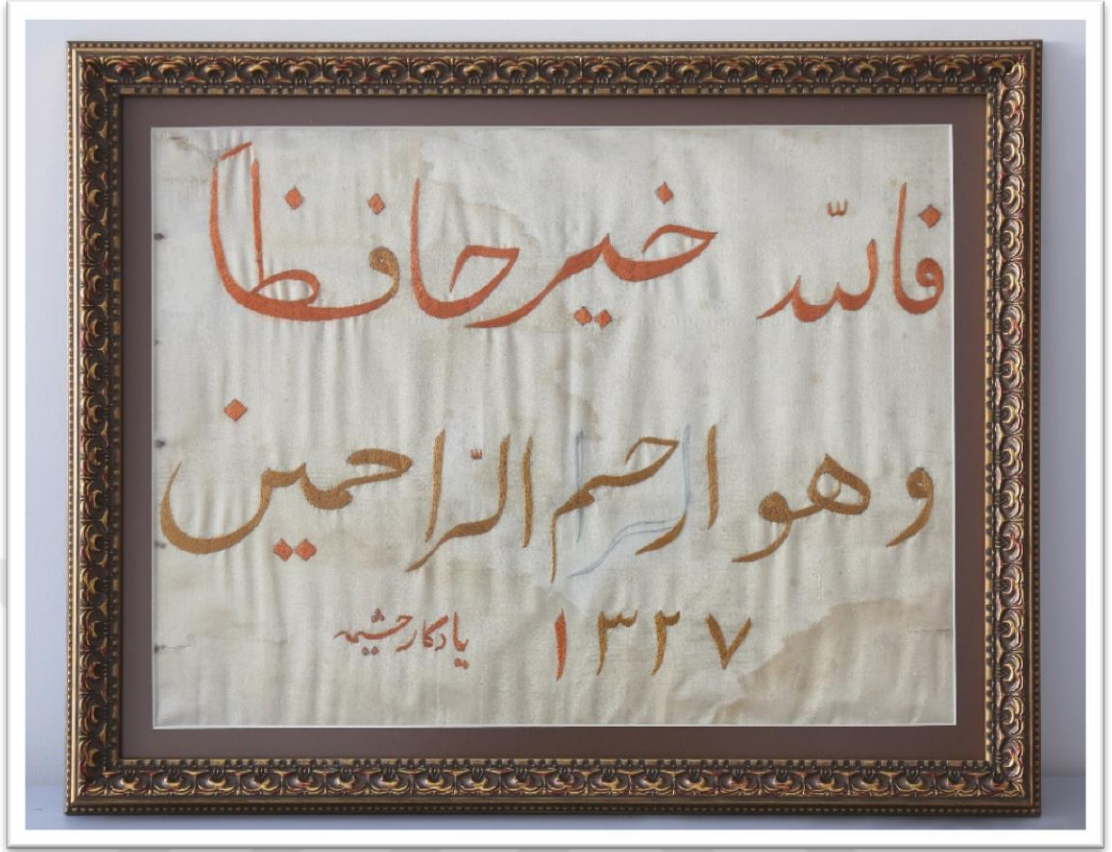 فالله خير حافظا
وهو ارحم الرّاحمين
١٣٢٧ يادكار